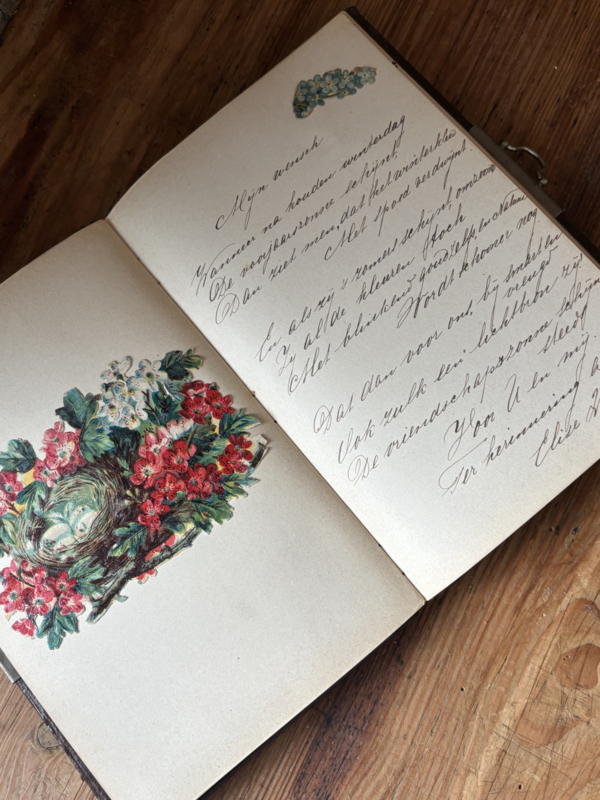 Mijn wensch
Wanneer na kouden winterdag
De voorjaarszonne schijnt,
Dan ziet men, dat het winterkleed
Met spoed verdwijnt.
En als zij 's zomers schijnt, omzoom
Zij al de kleuren
Met blinkend goud, zelfs en Natuur
Wordt schooner nog
Dat dan voor ons, bij smart en vreugd
Ook zulk een lichtbron zij
De vriendschapszonne schijn' steeds
Voor U en mij.
Ter herinnering
Elise